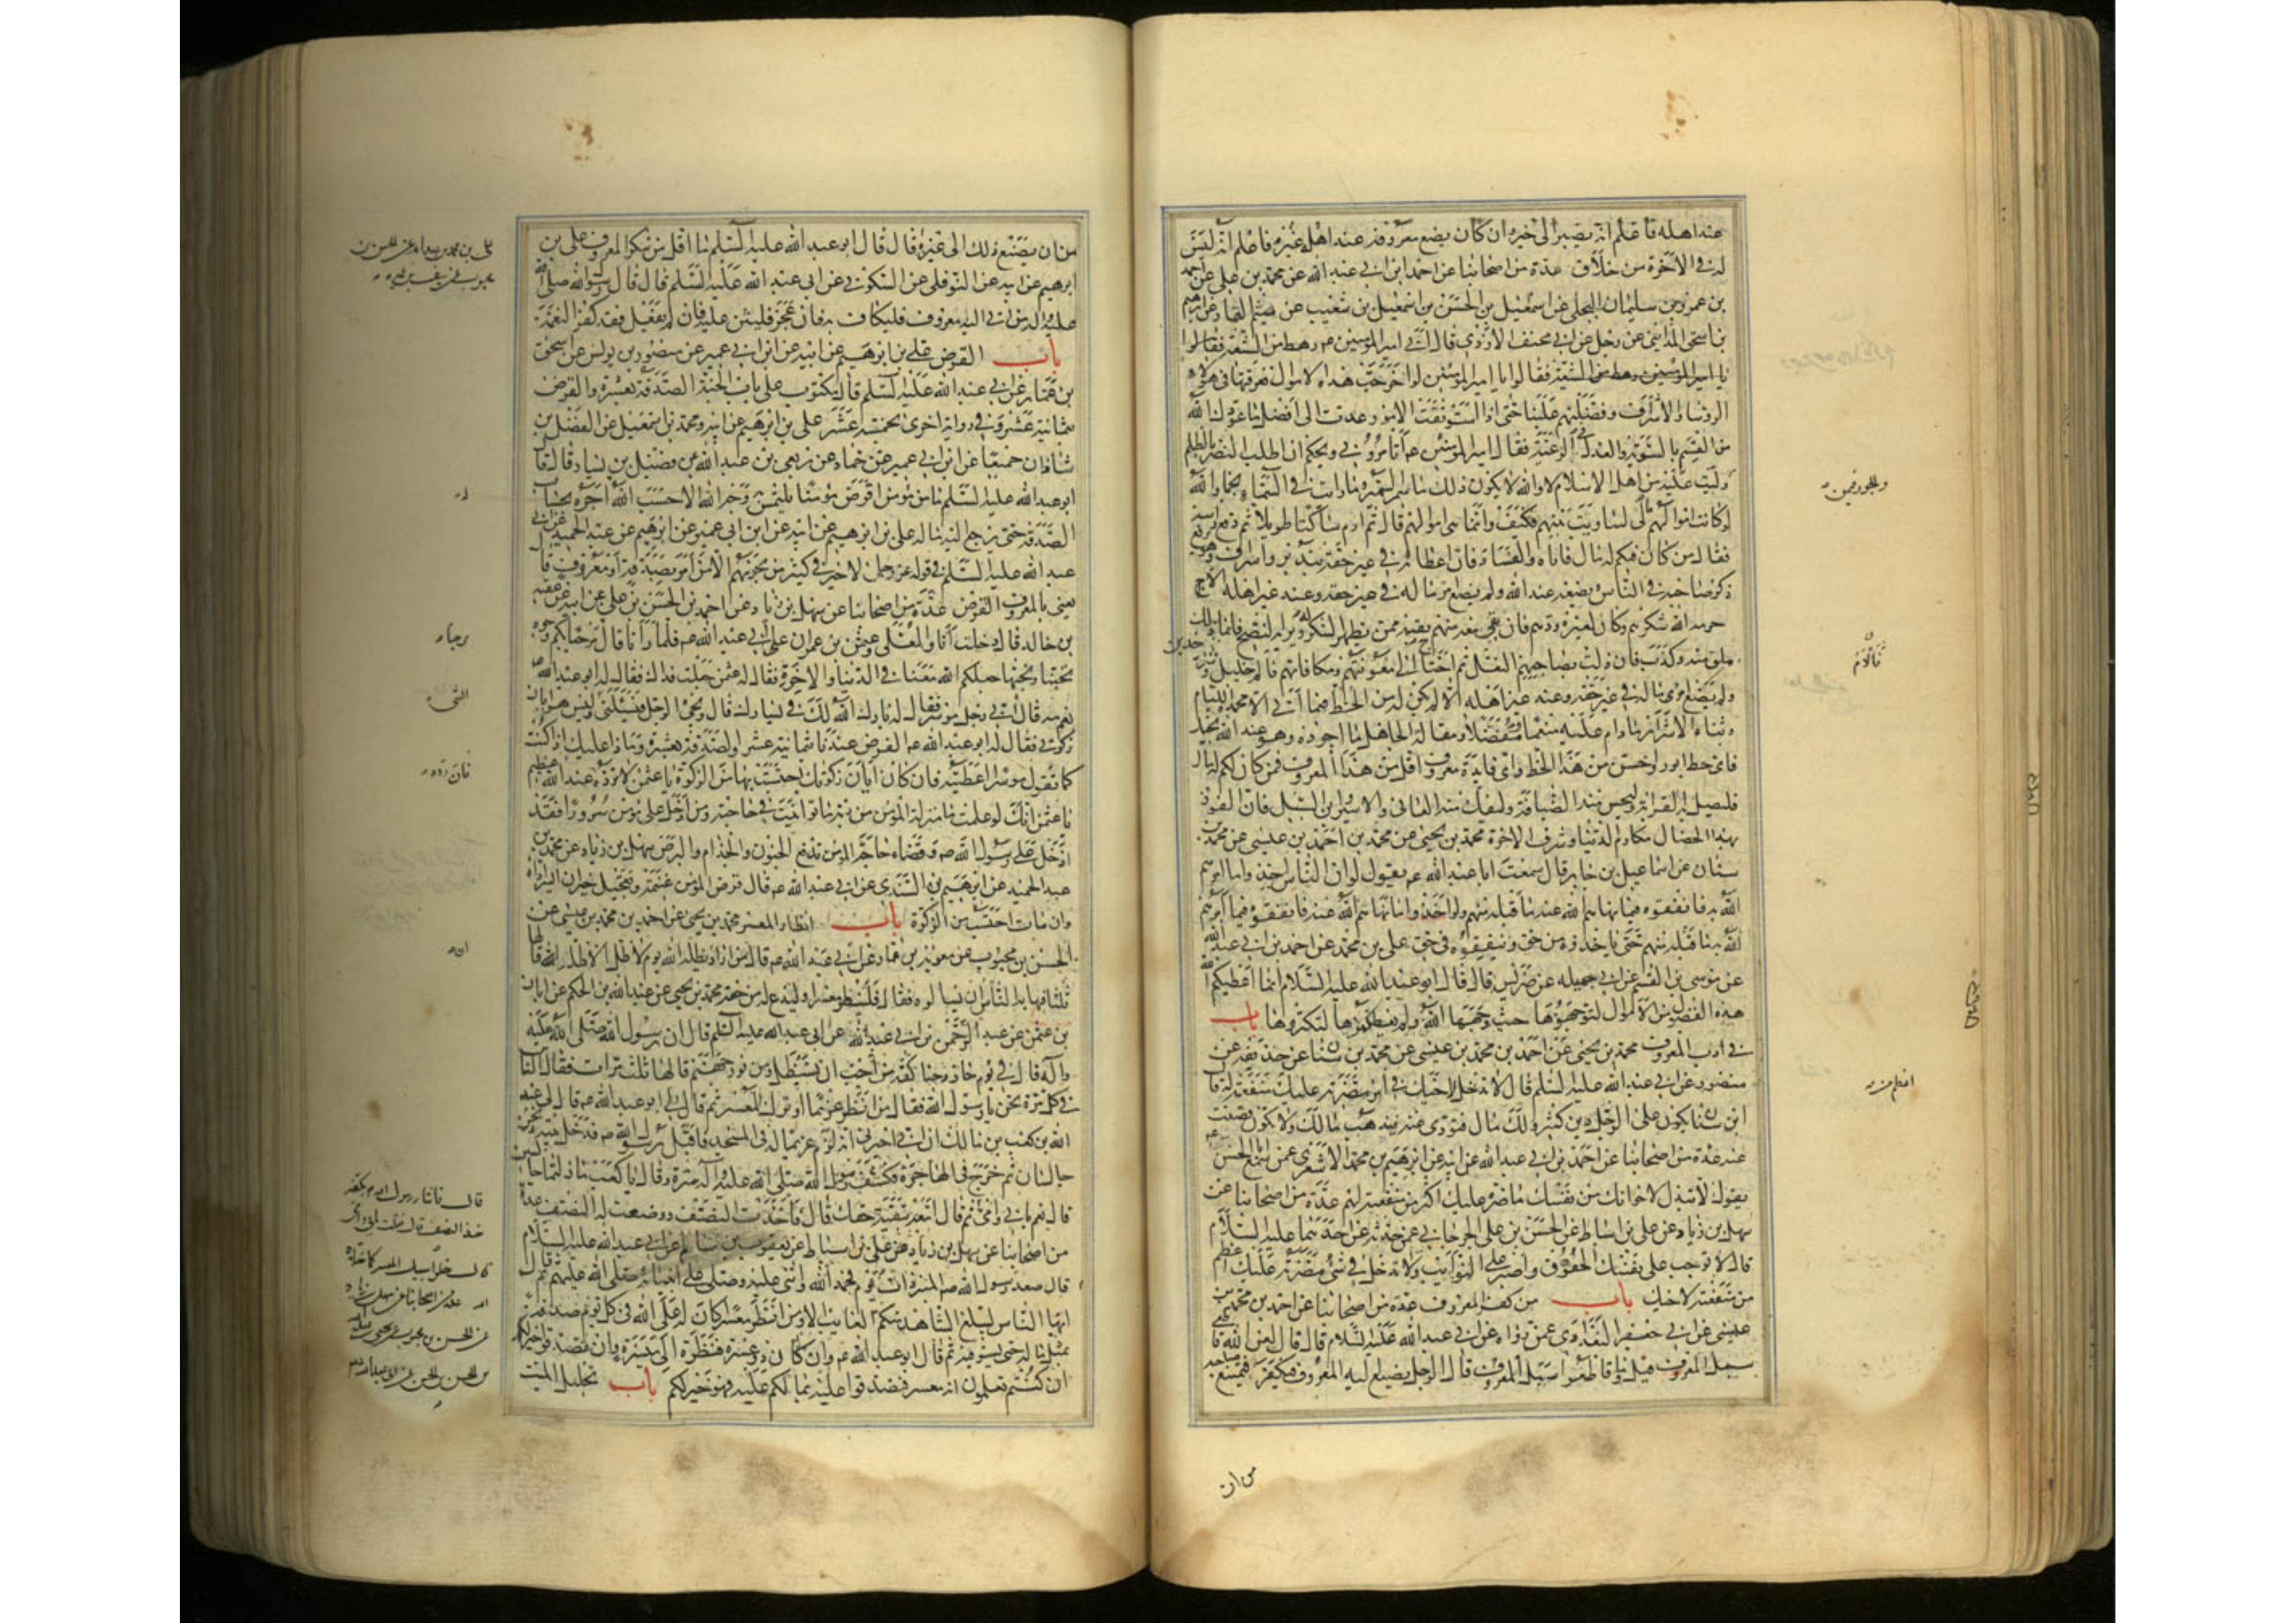 عند اهله فاعلم انه يصير الى خير وان كان يضع معروفه عند اهله غيره فاعلم انه ليس
له في الآخرة من خلاق عدة من اصحابنا عن احمد ابن ابي عبد الله عن محمد بن علي عن احمد
بن عمرو بن سليمان البجلي عن اسمعيل بن الحسن بن اسمعيل بن شعيب عن ميثم التمار عن ابرهيم
بن اسحق المدايني عن رجل عن ابي مخنف الازدي قال اتى امير المؤمنين ع رهط من الشيعة فقالوا
يا امير المؤمنين رهط من الشيعة فقالوا يا امير المؤمنين لو اخرجت هذه الاموال ففرقتها في هؤلاء
الرؤسا والاشراف وفضلتهم علينا حتى اذا استوثقت الامور عدت الى افضل ما عودك الله
من القسم بالسوية والعدل في الرعية فقال امير المؤمنين ع أتأمروني ويحكم ان اطلب النصر بالظلم
وليت عليه من اهل الاسلام لا والله لا يكون ذلك ما سمر السمير وما رايت في السماء نجما والله
لو كانت اموالهم مالي لساويت بينهم فكيف وانما هي اموالهم قال ثم ازم ساكتا طويلا ثم رفع راسه
فقال من كان فيكم له مال فاياه والفساد فان اعطائه في غير حقه تبذير واسراف وهو يرفع
ذكر صاحبه في الناس ويضعه عند الله ولم يضع امرء ماله في غير حقه وعند غير اهله الا
حرمه الله شكرهم وكان لغيره ودهم فان بقي معه منهم بقية ممن يظهر الشكر له ويريه النصح فانما ذلك
ملق منه وكذب فان زلت بصاحبهم النعل ثم احتاج الى معونتهم ومكافاتهم فالام خليل وشر خدين
ولم يضع امرء ماله في غير حقه وعند غير اهله الا لم يكن له من الحظ فيما اتى الا محمدة اللئام
وثناء الاشرار ما دام عليه منعما مفضلا ومقالة الجاهل ما اجوده وهو عند الله بخيل
فاي حظ ابور واخس من هذا الحظ واي فايدة معروف اقل من هذا المعروف فمن كان منكم له مال
فليصل به القرابة وليحسن منه الضيافة وليفك منه العاني والاسير وابن السبيل فان الفوز
بهذه الخصال مكارم الدنيا وشرف الاخرة محمد بن يحيى عن محمد بن احمد بن عيسى عن محمد بن
سنان عن اسماعيل بن جابر قال سمعت ابا عبد الله ع يقول لو ان الناس اخذوا ما امرهم
الله به فانفقوه فيما نهاهم الله عنه ما قبله منهم ولو اخذوا ما نهاهم الله عنه فانفقوه فيما امرهم
الله به ما قبله منهم حتى ياخذوه من حق وينفقوه في حق علي بن محمد عن احمد بن ابي عبد الله
عن موسى بن القسم عن ابي جميله عن ضريس قال قال ابو عبد الله عليه السلام انما اعطيكم الله
هذه الفضول من الاموال لتوجهوها حيث وجهها الله ولم يعطكموها لتكنزوها باب
في ادب المعروف محمد بن يحيى عن احمد بن محمد بن عيسى عن محمد بن سنان عن حذيفة عن
منصور عن ابي عبد الله عليه السلم قال لا تدخل لاخيك في امر مضرته عليك اعظم من منفعته له قا
ابن سنان يكون على الرجل دين كثير ولك مال فتؤدي عنه فيذهب مالك ولا تكون قضيت
عنه عدة من اصحابنا عن احمد بن ابي عبد الله عن ابيه عن ابرهيم بن محمد الاشعري عمن سمع ابا الحسن
يقول لا تبذل لاخوانك من نفسك ما ضره عليك اكثر من منفعته لهم عدة من اصحابنا عن
سهل بن زياد عن علي بن اسباط عن الحسن بن علي الجرجاني عمن حدثه عن احدهما عليه السلام
قال لا توجب على نفسك الحقوق واصبر على النوايب ولا تدخل في شيء مضرته عليك اعظم
من منفعته لاخيك باب من كفر المعروف عدة من اصحابنا عن احمد بن محمد بن
عيسى عن ابي جعفر البغدادي عمن رواه عن ابي عبد الله عليه السلام قال قال لعن الله قا
سبيل المعروف قيل وما قاطعوا سبيل المعروف قال الرجل يصنع اليه المعروف فيكفره فيمتنع صاحبه
من ان
من ان يصنع ذلك الى غيره قال قال ابو عبد الله عليه السلم ما اقل من شكر المعروف علي بن
ابرهيم عن ابيه عن النوفلي عن السكوني عن ابي عبد الله عليه السلم قال قال رسول الله صلى الله
عليه واله من اتي اليه معروف فليكاف به فان عجز فليثن عليه فان لم يفعل فقد كفر النعمة
باب القرض علي بن ابرهيم عن ابيه عن ابن ابي عمير عن منصور بن يونس عن اسحق
بن عمار عن ابي عبد الله عليه السلم قال مكتوب على باب الجنة الصدقة بعشرة والقرض
بثمانية عشر وفي رواية اخرى بخمسة عشر علي بن ابرهيم عن ابيه ومحمد بن اسمعيل عن الفضل بن
شاذان جميعا عن ابن ابي عمير عن حماد عن ربعي بن عبد الله عن فضيل بن يسار قال قا
ابو عبد الله عليه السلم ما من مؤمن اقرض مؤمنا يلتمس به وجه الله الا حسب الله اجره بحساب
الصدقة حتى يرجع اليه ماله علي بن ابرهيم عن ابيه عن ابن ابي عمير عن ابرهيم بن عبد الحميد عن ابي
عبد الله عليه السلم في قوله عز وجل لا خير في كثير من نجويهم الا من امر بصدقة او معروف قا
يعني بالمعروف القرض عدة من اصحابنا عن سهل بن زياد وعن احمد بن الحسن بن علي عن ابيه عن عقبه
بن خالد قال دخلت انا والمعلى وعثمن بن عمران على ابي عبد الله ع فلما رآنا قال مرحبا بكم وجوه
تحبنا ونحبها جعلكم الله معنا في الدنيا والاخرة فقال له عثمن جعلت فداك فقال له ابو عبد الله
نعم مه قال اني رجل موسر فقال له بارك الله لك في يسارك قال ويجئ الرجل فيسئلني وليس هو ابان
زكوتي فقال له ابو عبد الله ع القرض عندنا بثمانية عشر والصدقة بعشرة وماذا عليك اذا كنت
كما تقول موسرا اعطيته فان كان ابان زكوتك احتسبت بها من الزكوة يا عثمن لا ترده فان رده عند الله عظيم
يا عثمن انك لو علمت ما منزلة المؤمن من ربه ما توانيت في حاجته ومن ادخل على مؤمن سرورا فقد
ادخل على رسول الله ص وقضاء حاجة المؤمن تدفع الجنون والجذام والبرص سهل بن زياد عن محمد بن
عبد الحميد عن ابرهيم بن السندي عن ابي عبد الله ع قال قرض المؤمن غنيمة وتعجيل خير ان ايسر اداه
وان مات احتسب من الزكوة باب انظار المعسر محمد بن يحيى عن احمد بن محمد بن عيسى عن
الحسن بن محبوب عن معوية بن عمار عن ابي عبد الله ع قال من اراد ان يظله الله يوم لا ظل الا ظله قالها
ثلثا فهابه الناس ان يسالوه فقال فلينظر معسرا وليدع له من حقه محمد بن يحيى عن عبد الله بن الحكم عن ابان
بن عثمن عن عبد الرحمن بن ابي عبد الله عن ابي عبد الله عليه السلم قال ان رسول الله صلى الله عليه
وآله قال في يوم حار وحنا كفه من احب ان يستظل من فور جهنم قالها ثلث مرات فقال الناس
في كل مرة نحن يا رسول الله فقال من انظر غريما او ترك المعسر ثم قال لي ابو عبد الله ع قال لي عبد
الله بن كعب بن مالك ان ابي اخبرني انه لزم غريما له في المسجد فاقبل رسول الله ص فدخل بيته ونحن
جالسان ثم خرج في الهاجرة فكشف رسول الله صلى الله عليه واله ستره وقال يا كعب ما زلتما جالسين
قال نعم بابي وامي ثم قال اتبعه ببقية حقك قال فاخذت النصف ووضعت له النصف عدة
من اصحابنا عن سهل بن زياد عن علي بن اسباط عن يعقوب بن سالم عن ابي عبد الله عليه السلام
قال صعد رسول الله ص المنبر ذات يوم فحمد الله واثنى عليه وصلى على انبيائه صلى الله عليهم ثم قال
ايها الناس ليبلغ الشاهد منكم الغايب الا ومن انظر معسرا كان له على الله في كل يوم صدقة
بمثل ماله حتى يستوفيه ثم قال ابو عبد الله ع وان كان ذو عسرة فنظرة الى ميسرة وان تصدقوا خير لكم
ان كنتم تعلمون انه معسر فتصدقوا عليه بمالكم عليه فهو خير لكم باب تحليل الميت